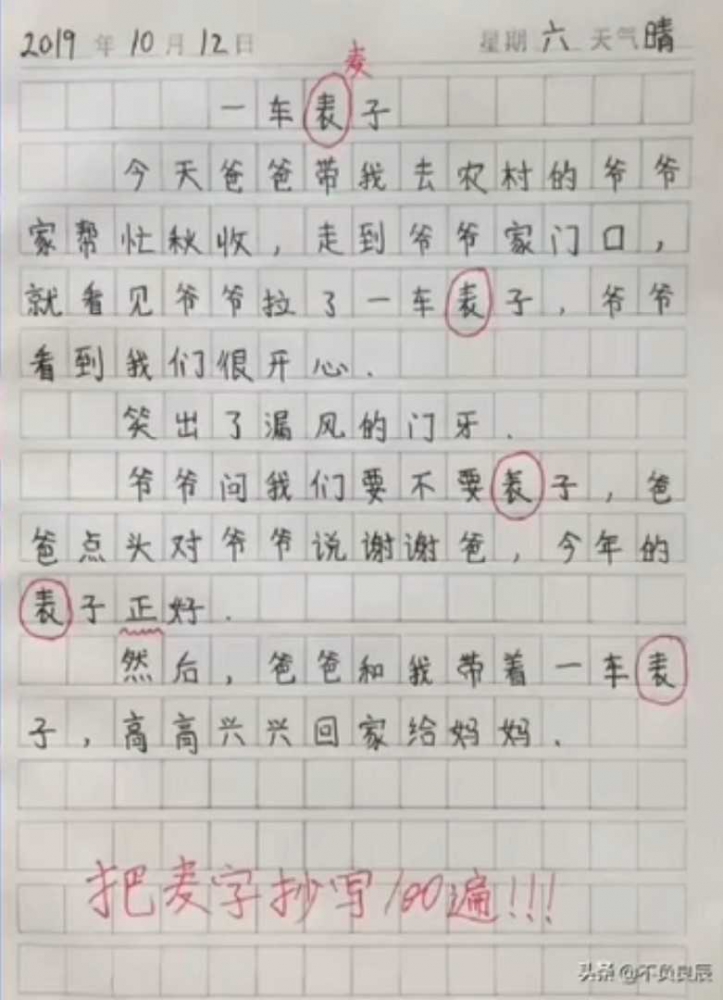 2019年10月12日 星期六 天气晴
麦
一车表子
今天爸爸带我去农村的爷爷
家帮忙秋收，走到爷爷家门口，
就看见爷爷拉了一车表子，爷爷
看到我们很开心.
笑出了漏风的门牙.
爷爷问我们要不要表子，爸
爸点头对爷爷说谢谢爸，今年的
表子正好.
然后，爸爸和我带着一车表
子，高高兴兴回家给妈妈.
把麦字抄写100遍!!!
头条@不负良辰